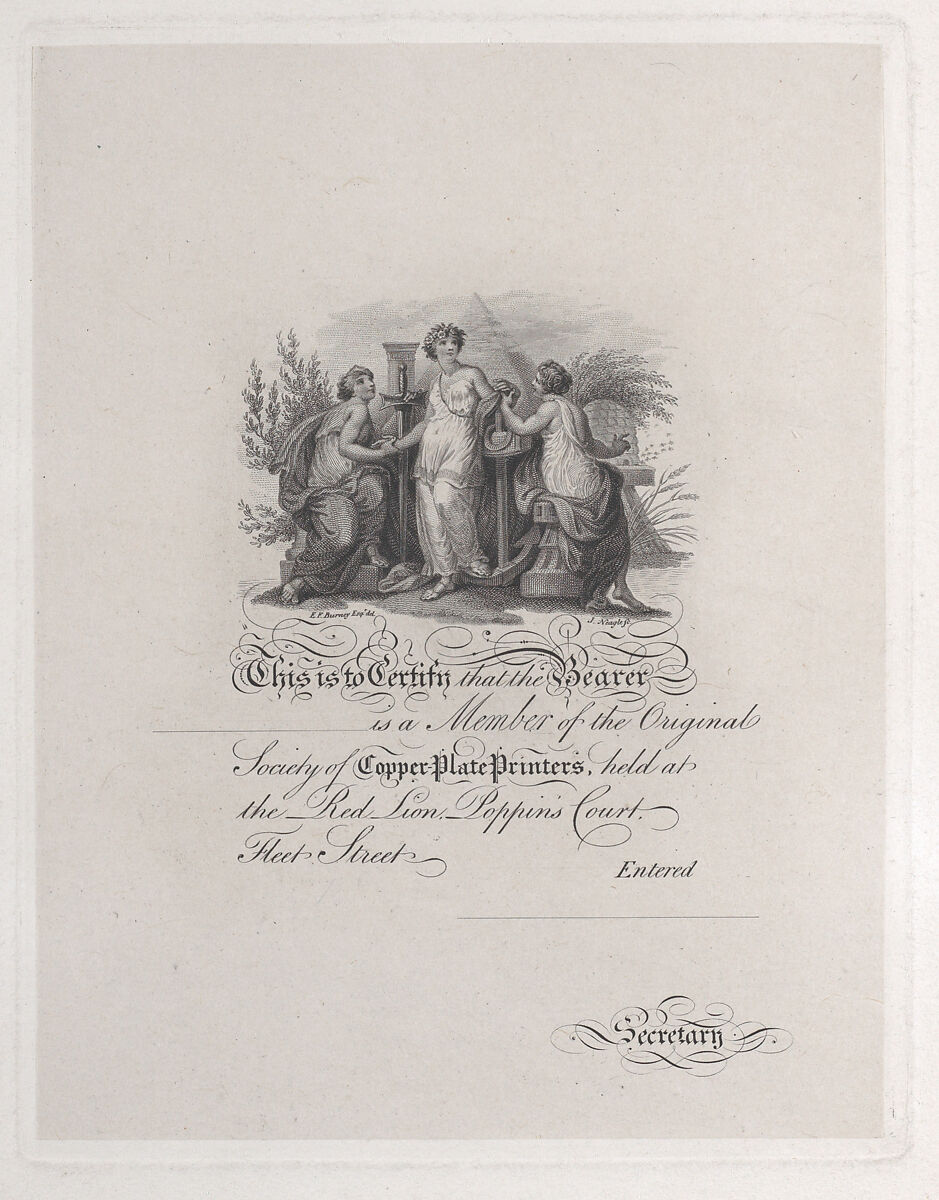 E.F. Burney Esqr. del.
J. Neagle sc.
This is to Certify that the Bearer
is a Member of the Original
Society of Copper-Plate Printers, held at
the Red Lion, Poppin's Court,
Fleet Street
Entered
Secretary